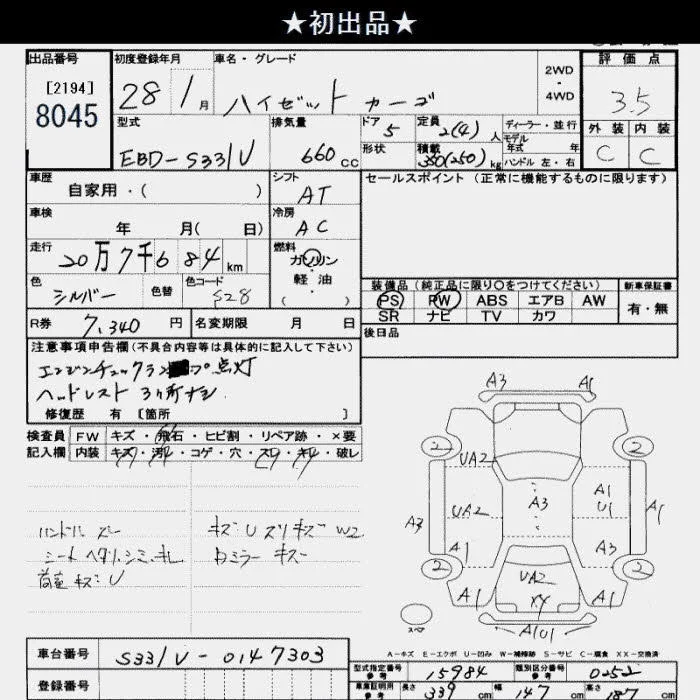 ★初出品★
出品番号
[2194]
8045
初度登録年月
28 1 月
車名・グレード
ハイゼット カーゴ
2WD
・
4WD
評価点
3.5
外装 内装
C C
型式
EBD-S331V
排気量
660 cc
ドア
5
形状
定員
2(4) 人
積載
350(250) kg
ディーラー・並行
モデル
年式 年
ハンドル 左・右
車歴
自家用・( )
シフト
AT
セールスポイント (正常に機能するものに限ります)
車検
年 月( 日)
冷房
AC
走行
20万7千684 km
燃料
ガソリン
軽油
( ・ )
色
シルバー
色替
色コード
S28
装備品(純正品に限り〇をつけてください)
PS PW ABS エアB AW
SR ナビ TV カワ
新車保証書
有・無
R券 7,340 円
名変期限 月 日
後日品
注意事項申告欄(不具合内容等は具体的に記入して下さい)
エンジンチェックランプ点灯
ヘッドレスト 3ヶ所ナシ
修復歴 有 〔箇所 〕
検査員
記入欄
FW キズ・飛石・ヒビ割・リペア跡・×要
内装 キズ・汚れ・コゲ・穴・スレ・キレ・破レ
ハンドル スレ
シート ヘタリ、シミ、キレ
荷室 キズ U
キズ U スリキズ W2
ロミラー キズ
A3 A1
2 2
UA2
A3
UA2
A1
U1
A3 A1
A1 A3
2 2
UA2
XX
A1 A1
A1U1
スペア
A-キズ E-エクボ U-凹み W-補修跡 S-サビ C-腐食 XX-交換済
車台番号
S331V-0147303
登録番号
型式指定番号
参考
15984
類別区分番号
参考
0252
車庫証明用
参考
長さ 339 cm 幅 147 cm 高さ 187 cm